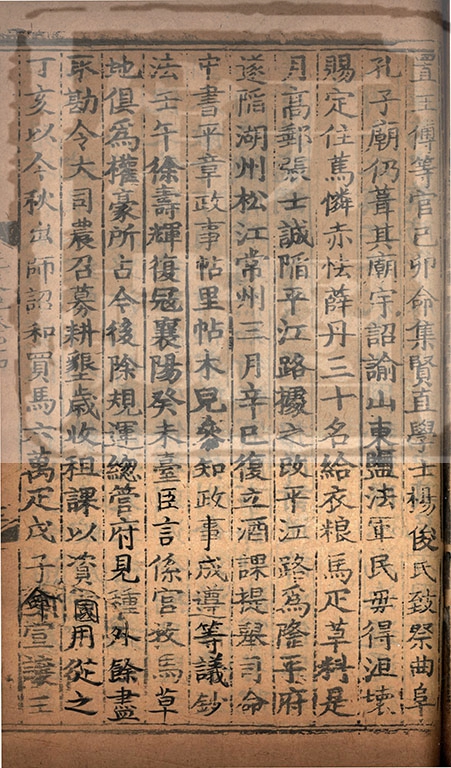 置王傅等官己卯命集賢直學士楊俊民致祭曲阜
孔子廟仍葺其廟宇詔諭山東鹽法軍民毋得沮壞
賜定住篤憐赤怯薛丹三十名給衣粮馬疋草料是
月高郵張士誠陷平江路據之改平江路爲隆平府
遂陷湖州松江常州三月辛巳復立酒課提舉司命
中書平章政事帖里帖木兒叅知政事成遵等議鈔
法壬午徐壽輝復冦襄陽癸未臺臣言係官牧馬草
地俱爲權豪所占今後除規運緫管府見種外餘盡
取勘令大司農召募耕墾歲收租課以資國用從之
丁亥以今秋出師詔和買馬六萬疋戊子命宣讓王